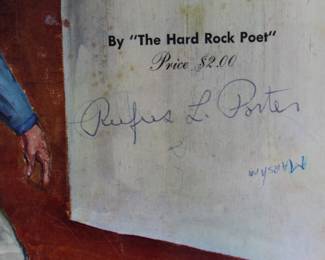 By "The Hard Rock Poet"
Price $2.00
Rufus L. Porter